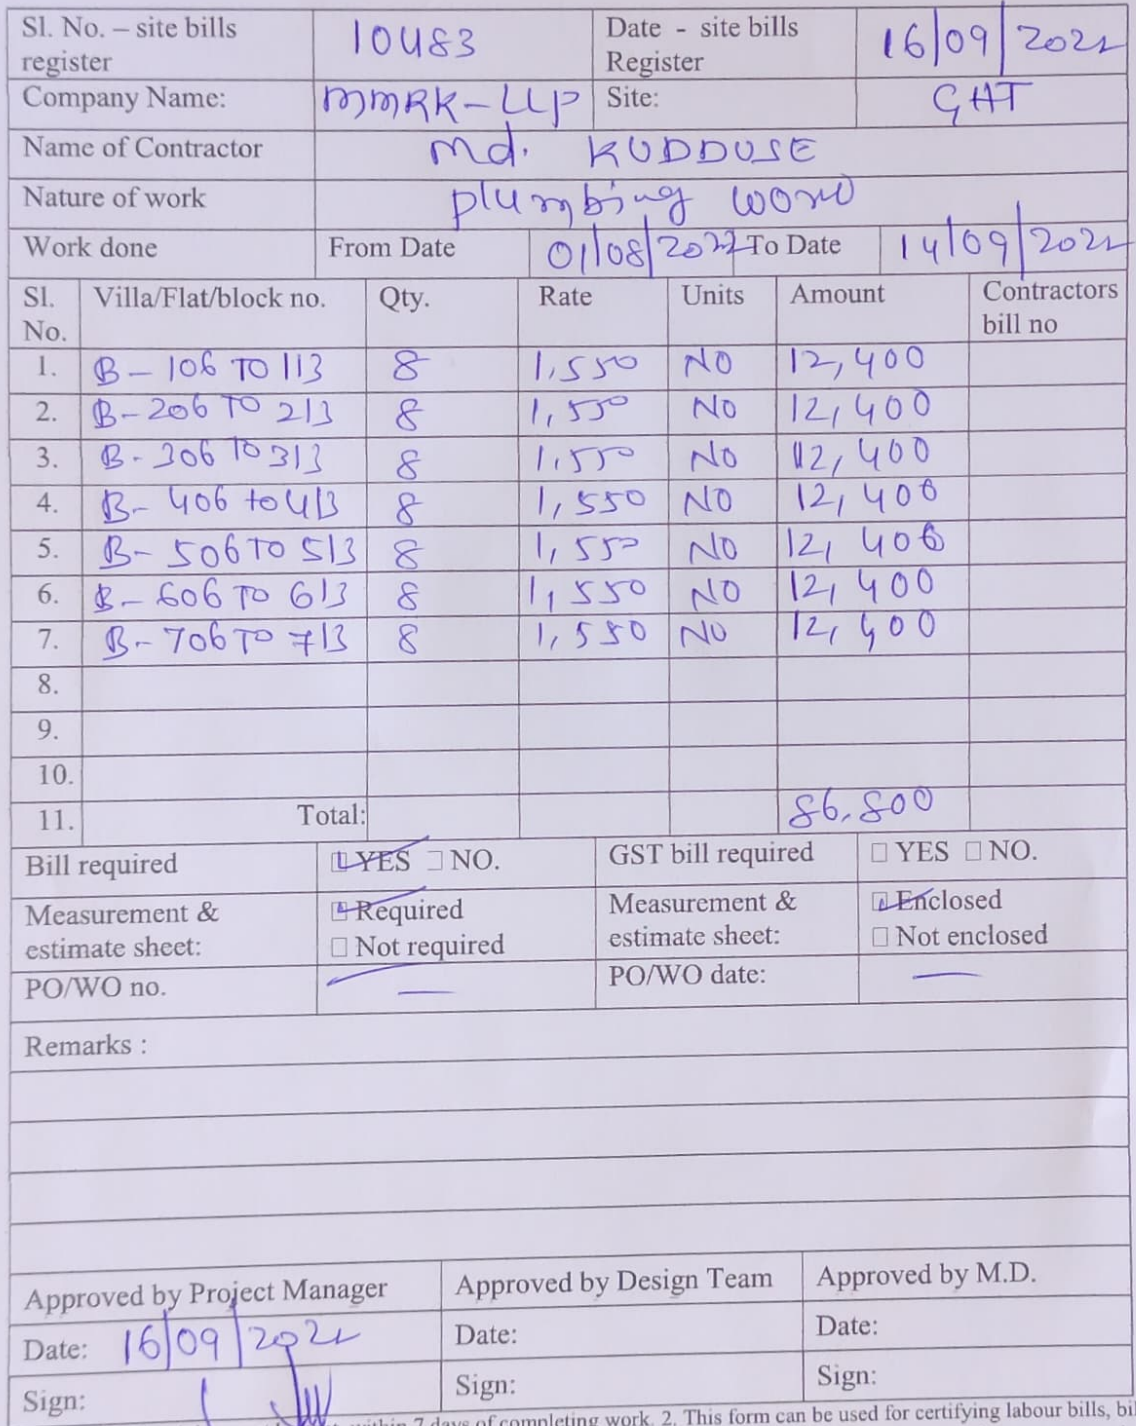 Sl. No. – site bills register 10483 Date - site bills Register 16/09/2022
Company Name: MMRK-LLP Site: GHT
Name of Contractor Md. KUDDUSE
Nature of work Plumbing work
Work done From Date 01/08/2022 To Date 14/09/2022
Sl. No. Villa/Flat/block no. Qty. Rate Units Amount Contractors bill no
1. B-106 TO 113 8 1,550 NO 12,400
2. B-206 TO 213 8 1,550 NO 12,400
3. B-306 TO 313 8 1,550 NO 12,400
4. B-406 to 413 8 1,550 NO 12,400
5. B-506 TO 513 8 1,550 NO 12,400
6. B-606 TO 613 8 1,550 NO 12,400
7. B-706 TO 713 8 1,550 NO 12,400
8.
9.
10.
11. Total: 86,800
Bill required YES NO. GST bill required YES NO.
Measurement & estimate sheet: Required Not required Measurement & estimate sheet: Enclosed Not enclosed
PO/WO no. — PO/WO date: —
Remarks :
Approved by Project Manager Approved by Design Team Approved by M.D.
Date: 16/09/2022 Date: Date:
Sign: Sign: Sign:
within 7 days of completing work. 2. This form can be used for certifying labour bills,